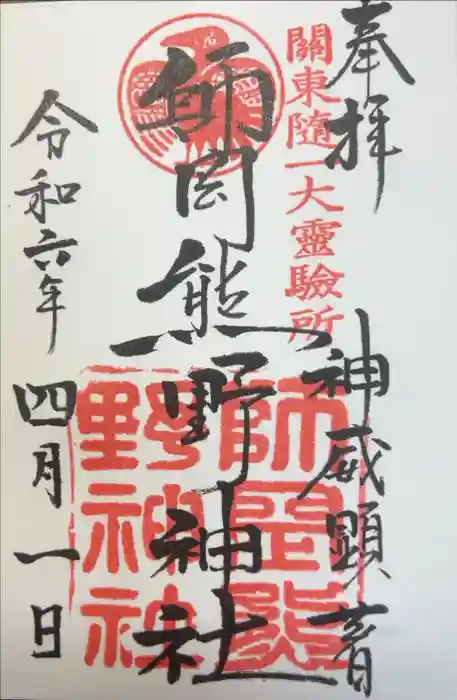 奉拝
神威顕著
關東随一大靈驗所
師岡熊野神社
師岡熊野神社
令和六年
四月一日